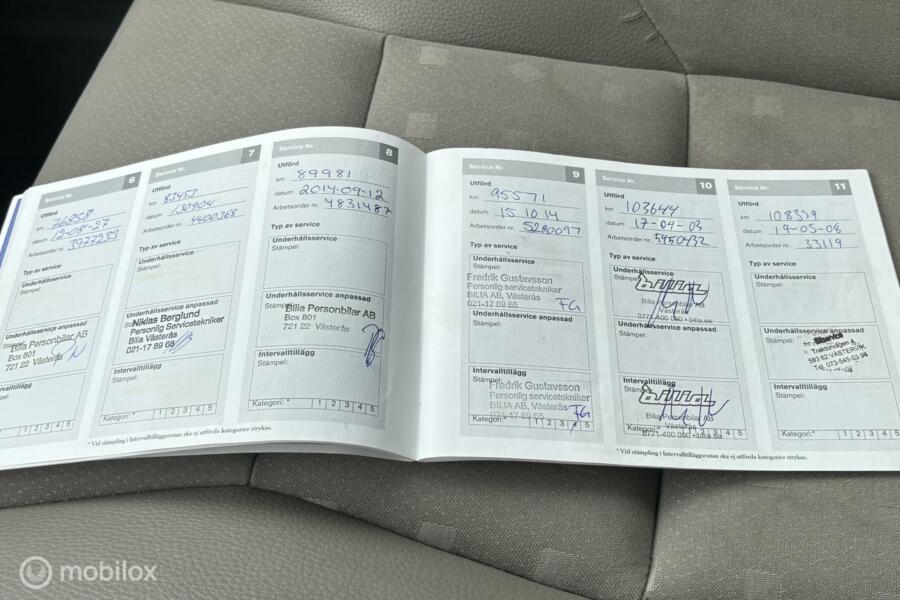 Service Nr. 6
Utförd
km 76858
datum 12-08-27
Arbetsorder nr. 3977233
Typ av service
Underhållsservice
Stämpel:
Underhållsservice anpassad
Bilia Personbilar AB
Box 801
721 22 Västerås
Intervalltillägg
Stämpel:
Kategori:* 1 2 3 4 5
Service Nr. 7
Utförd
km 83453
datum 130904
Arbetsorder nr. 4400368
Typ av service
Underhållsservice
Stämpel:
Underhållsservice anpassad
Niklas Berglund
Personlig Servicetekniker
Bilia Västerås
021-17 89 68
Intervalltillägg
Stämpel:
Kategori:* 1 2 3 4 5
* Vid stämpling i Intervalltilläggsrutan ska ej utförda kategorier strykas.
Service Nr. 8
Utförd
km 89981
datum 2014-09-12
Arbetsorder nr. 4831487
Typ av service
Underhållsservice
Stämpel:
Underhållsservice anpassad
Bilia Personbilar AB
Box 801
721 22 Västerås
Intervalltillägg
Stämpel:
Kategori:* 1 2 3 4 5
Service Nr. 9
Utförd
km 95571
datum 15 10 14
Arbetsorder nr. 5280097
Typ av service
Underhållsservice
Stämpel:
Fredrik Gustavsson
Personlig servicetekniker
BILIA AB, Västerås
021-17 89 65 FG
Underhållsservice anpassad
Stämpel:
Intervalltillägg
Stämpel:
Fredrik Gustavsson
Personlig servicetekniker
BILIA AB, Västerås FG
021-17 89 65
Kategori:* 1 2 3 4 5
Service Nr. 10
Utförd
km 103644
datum 17-04-03
Arbetsorder nr. 5450432
Typ av service
Underhållsservice
Stämpel:
Bilia
Bilia Personbilar AB
Västerås
0771-400 000 • bilia.se
Underhållsservice anpassad
Stämpel:
Intervalltillägg
Stämpel:
Bilia
Bilia Personbilar AB
Västerås
0771-400 000 • bilia.se
Kategori:* 1 2 3 4 5
Service Nr. 11
Utförd
km 108339
datum 19-05-08
Arbetsorder nr. 33119
Typ av service
Underhållsservice
Stämpel:
Underhållsservice anpassad
Stämpel:
593 62 VÄSTERVIK
Intervalltillägg
Stämpel:
Kategori:* 1 2 3 4 5
* Vid stämpling i Intervalltilläggsrutan ska ej utförda kategorier strykas.
mobilox